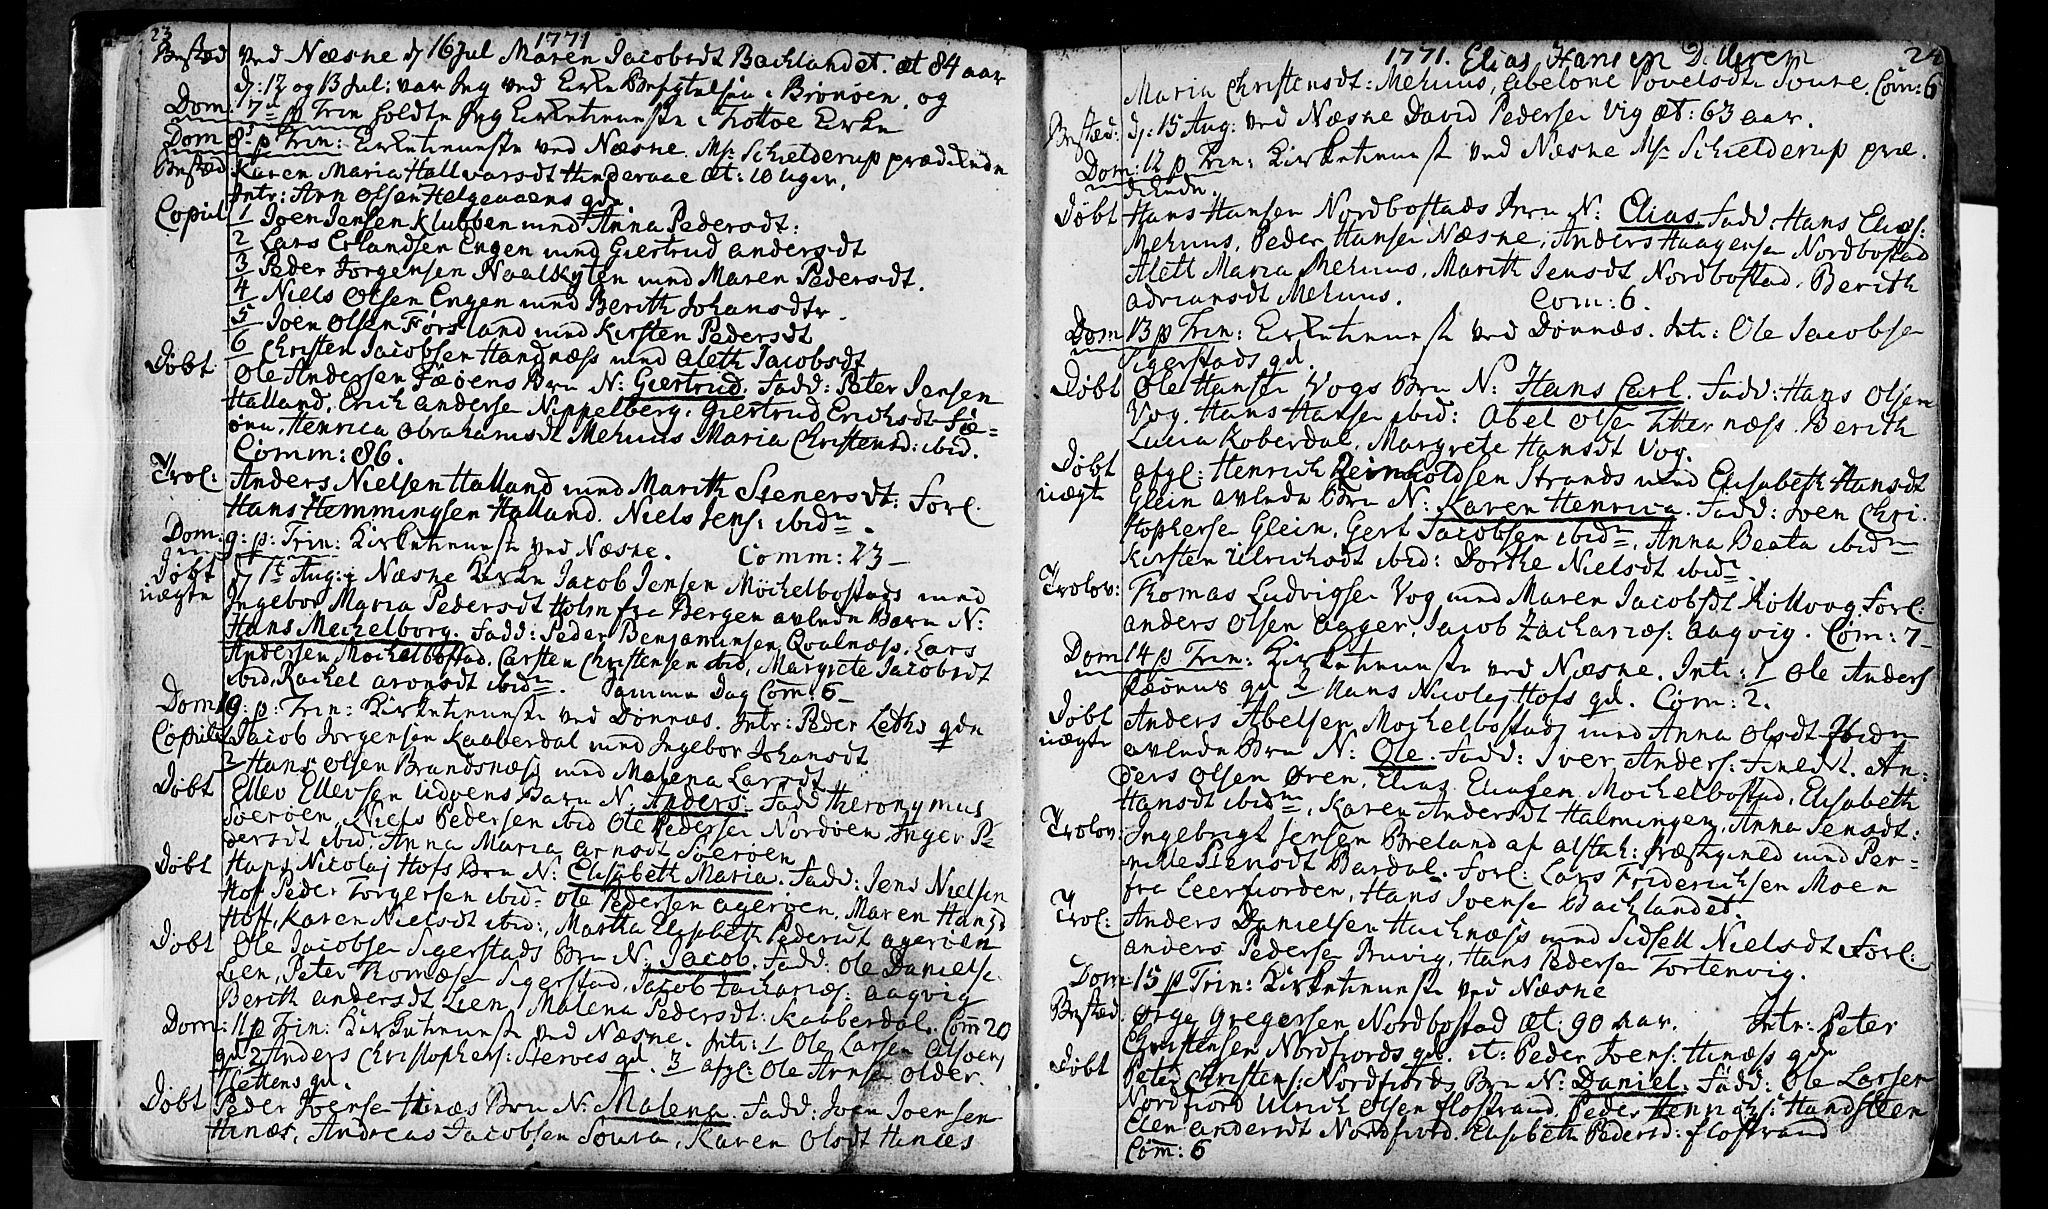 23
1771
Bested ved Næsne d 16 Jul Maren Jacobsdt Backlandet. æt 84 aar
d: 12 og 13 Jul: var Jeg ved Brønøen, og
Dom: 7de p Trin holdte Jeg Kirketieniste i Kirke
Dom 8de p Trin: Kirketieniste ved Næsne. Mr: Schielderup prædikede
Bested Karen Maria Hallvarsdt Hinderaae æt: 10 uger.
Intr: Arn Olsen Helgeaaens qde
Copul 1 Joen Jensen Klubben med Anna Pedersdt:
2 Lars Erlandsen Engen med Giertrud andersdt
3 Peder Jorgensen Naalkylen med Maren Pedersdt.
4 Niels Olsen Engen med Berith Johansdtr.
5 Joen Olsen Førsland med Kirsten Pedersdt
6 Christen Jacobsen Handnæss med Aleth Jacobsdt
Døbt Ole Andersen Fæøens Brn N: Giertrud. Fadd: Peter Jensen
Halland, Erich andersen Nippelberg, Giertrud Erichsdt Fæ=
øen, Henrica Abrahamsdt Mehuus Maria Christensd: ibid.
Comm: 86.
Trol: Anders Nielsen Halland med Marith Stenersdt: Forl:
Hans Hemmingsen Halland. Niels Jens: ibidn.
Dom: 9: p: Trin: Kirketieniste ved Næsne. Comm: 23
Døbt d 1te Aug: i Næsne Kirke Jacob Jensen Mochelbostads med
uægte Ingebor Maria Pedersdt Holm fra Bergen avlede Barn N:
Hans Mechelborg. Fadd: Peder Benjaminsen Qvalnæss, Lars
Andersen Mochelbostad, Carsten Christensen ibid, Margrete Jacobsdt
ibid, Rachel aronsdt ibidn. Samme Dag Com: 6
Dom 10: p: Trin: Kirketieniste ved Dønnæs. Intr: Peder Leths qde
Copul 1 Jacob Jorgensen Kaaberdal med Ingebor Johansdt
2 Hans Olsen Brandsnæss med Malena Larsdt
Døbt Ellev Ellevsen Udøens Barn N. Anders. Fadd Hieronymus
Soerøen, Niels Pedersen ibid Ole Pedersen Nordøen Inger Pe
dersdt ibid: Anna Maria arnsdt Soerøen
Døbt Hans Nicolaj Hofs Brn N: Elisabeth Maria. Fadd: Jens Nielsen
Hof Peder Torgersen ibidn Ole Pedersen agerøen, Maren Hansd
Hoff, Karen Nielsdt ibid:, Martha Elisabeth Pedersdt agerøen
Døbt Ole Jacobsen Sigerstads Brn N: Jacob. Fadd: Ole Danielse
Lien, Peter Thomæsen Sigerstad, Jacob Zachariæs: aagvig
Berith andersdt Lien, Malena Pedersdt: Kaaberdal. Com 20
Dom: 11 p Trin: Kirketieniste ved Næsne. Intr: 1 Ole Larsen Alsøens
qd 2 Anders Christophers: Sterves qd. 3 afgl: Ole Arnsen Older.
Flettens qd.
Døbt Peder Joensen Hinæs Brn N: Malena. Fadd: Joen Joensen
Hinæs, Andreas Jacobsen Soura, Karen Olsdt Hinæs
1771. Elias Hansen 24
Maria Christensdt: Mehuus, Abelone Povelsdt Soure. Com: 6
Bested: d: 15 Aug: ved Næsne David Pedersen Vig æt: 63 aar.
Dom: 12 p Trin: Kirketieniste ved Næsne Mr Schielderup præ.
dikede.
Døbt Hans Hansen Nordbostads Brn N: Elias Fadd: Hans Elias:
Mehuus, Peder Hansen Næsne, Anders Haagensen Nordbostad
Alett Maria Mehuus, Marith Jensdt Nordbostad, Berith
adriansdt Mehuus. Com: 6.
Dom 13 p Trin: Kirketieniste ved Dønnæs. Intr: Ole Jacobsen
Sigerstads qd.
Døbt Ole Hansen Vogs Brn N: Hans Carl. Fadd: Hans Olsen
Vog, Hans Hansen ibid: Abel Olsen Titternæss. Berith
Lucia Koberdal, Margrete Hansdt Vog.
Døbt afgl: Henrich Reinholdsen Strands med Elisabeth Hansdt
uægte Glein avlede Brn N: Karen Henrica. Fadd: Joen Chri.
stophersen Glein, Gert Jacobsen ibidn, Anna Beata ibidn
Kirsten Ulrichsdt ibid: Dorthe Nielsdt ibidn.
Trolov: Thomas Ludvigsen Vog med Maren Jacobsdt Kolvog. Forl:
anders Olsen aager, Jacob Zachariæs: aagvig. Com: 7
Dom 14 p Trin: Kirketieniste ved Næsne. Intr: 1 Ole Anders
Fæøens qd 2 Hans Nicolaj Hofs qd. Com: 2.
Døbt Anders Abelsen Mochelbostads med Anna Olsdt ibidn
uægte avlede Brn N: Ole. Fadd: Iver Anders: Finedt. An=
ders Olsen Øren, Elias Eliasen Mochelbostad, Elisabeth
Hansdt ibidn, Karen Andersdt Halmingen, Anna Jensdt:
Trolov: Ingebrigt Jensen Breland af alstah: Præstegield med Per=
nille Stensdt Bardal. Forl: Lars Friderichsen Moen
fra Leerfiorden, Hans Joensen Backlandet.
Trol: Anders Danielsen Hacknæss med Sidsell Nielsdt Forl:
anders Pedersen Bruvig, Hans Pedersen Tortenvig.
Dom 15 p Trin: Kirketieniste ved Næsne
Bested. Ørge Gregersen Nordbostad æt: 90 aar. Intr: Peter
Christensen Nordfiords qd. it: Peder Joens: Hinæss qde
Døbt Peter Christens: Nordfiords Brn N: Daniel. Fadd: Ole Larsen
Nordfiord Ulrich Olsen flostrand, Peder Henrichs: Handsteen
Elen andersdt Nordfiord. Elisabeth Pedersd: flostrand
Com: 6